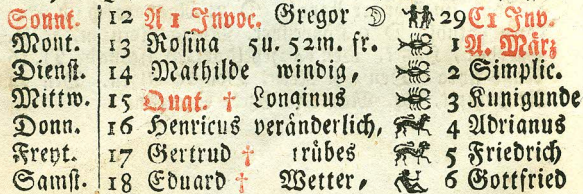 Sonnt. 12 A 1 Invoc. Gregor 29 C1 Inv.
Mont. 13 Rosina 5u. 52m. fr. 1 A. März
Dienst. 14 Mathilde windig, 2 Simplic.
Mittw. 15 Quat. † Longinus 3 Kunigunde
Donn. 16 Henricus veränderlich, 4 Adrianus
Freyt. 17 Gertrud † trübes 5 Friedrich
Samst. 18 Eduard † Wetter, 6 Gottfried